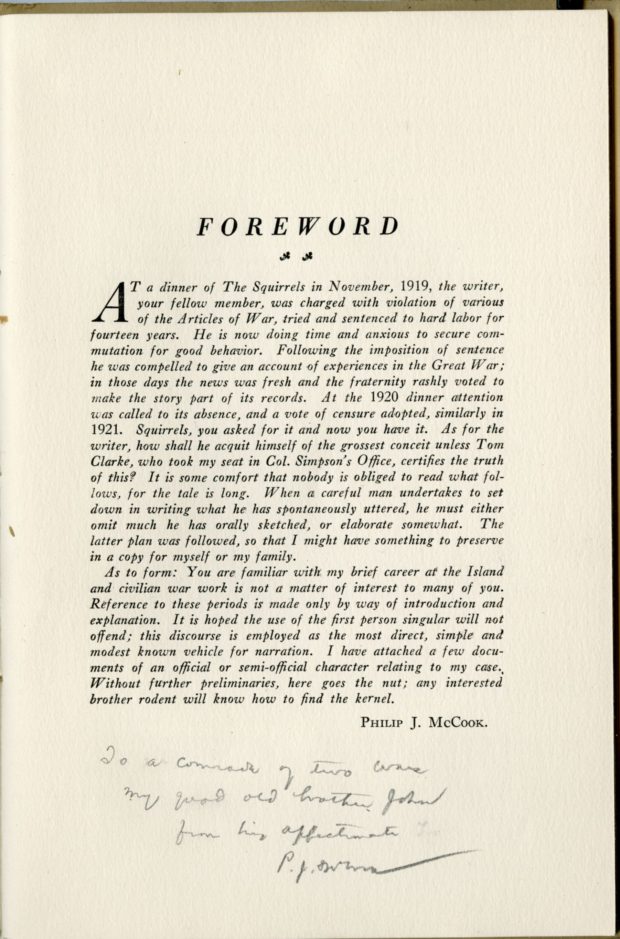 FOREWORD
AT a dinner of The Squirrels in November, 1919, the writer,
your fellow member, was charged with violation of various
of the Articles of War, tried and sentenced to hard labor for
fourteen years. He is now doing time and anxious to secure com-
mutation for good behavior. Following the imposition of sentence
he was compelled to give an account of experiences in the Great War;
in those days the news was fresh and the fraternity rashly voted to
make the story part of its records. At the 1920 dinner attention
was called to its absence, and a vote of censure adopted, similarly in
1921. Squirrels, you asked for it and now you have it. As for the
writer, how shall he acquit himself of the grossest conceit unless Tom
Clarke, who took my seat in Col. Simpson's Office, certifies the truth
of this? It is some comfort that nobody is obliged to read what fol-
lows, for the tale is long. When a careful man undertakes to set
down in writing what he has spontaneously uttered, he must either
omit much he has orally sketched, or elaborate somewhat. The
latter plan was followed, so that I might have something to preserve
in a copy for myself or my family.
As to form: You are familiar with my brief career at the Island
and civilian war work is not a matter of interest to many of you.
Reference to these periods is made only by way of introduction and
explanation. It is hoped the use of the first person singular will not
offend; this discourse is employed as the most direct, simple and
modest known vehicle for narration. I have attached a few docu-
ments of an official or semi-official character relating to my case.
Without further preliminaries, here goes the nut; any interested
brother rodent will know how to find the kernel.
PHILIP J. MCCOOK.
To a comrade of two wars
my good old brother John
from his affectionate
P. J. McCook